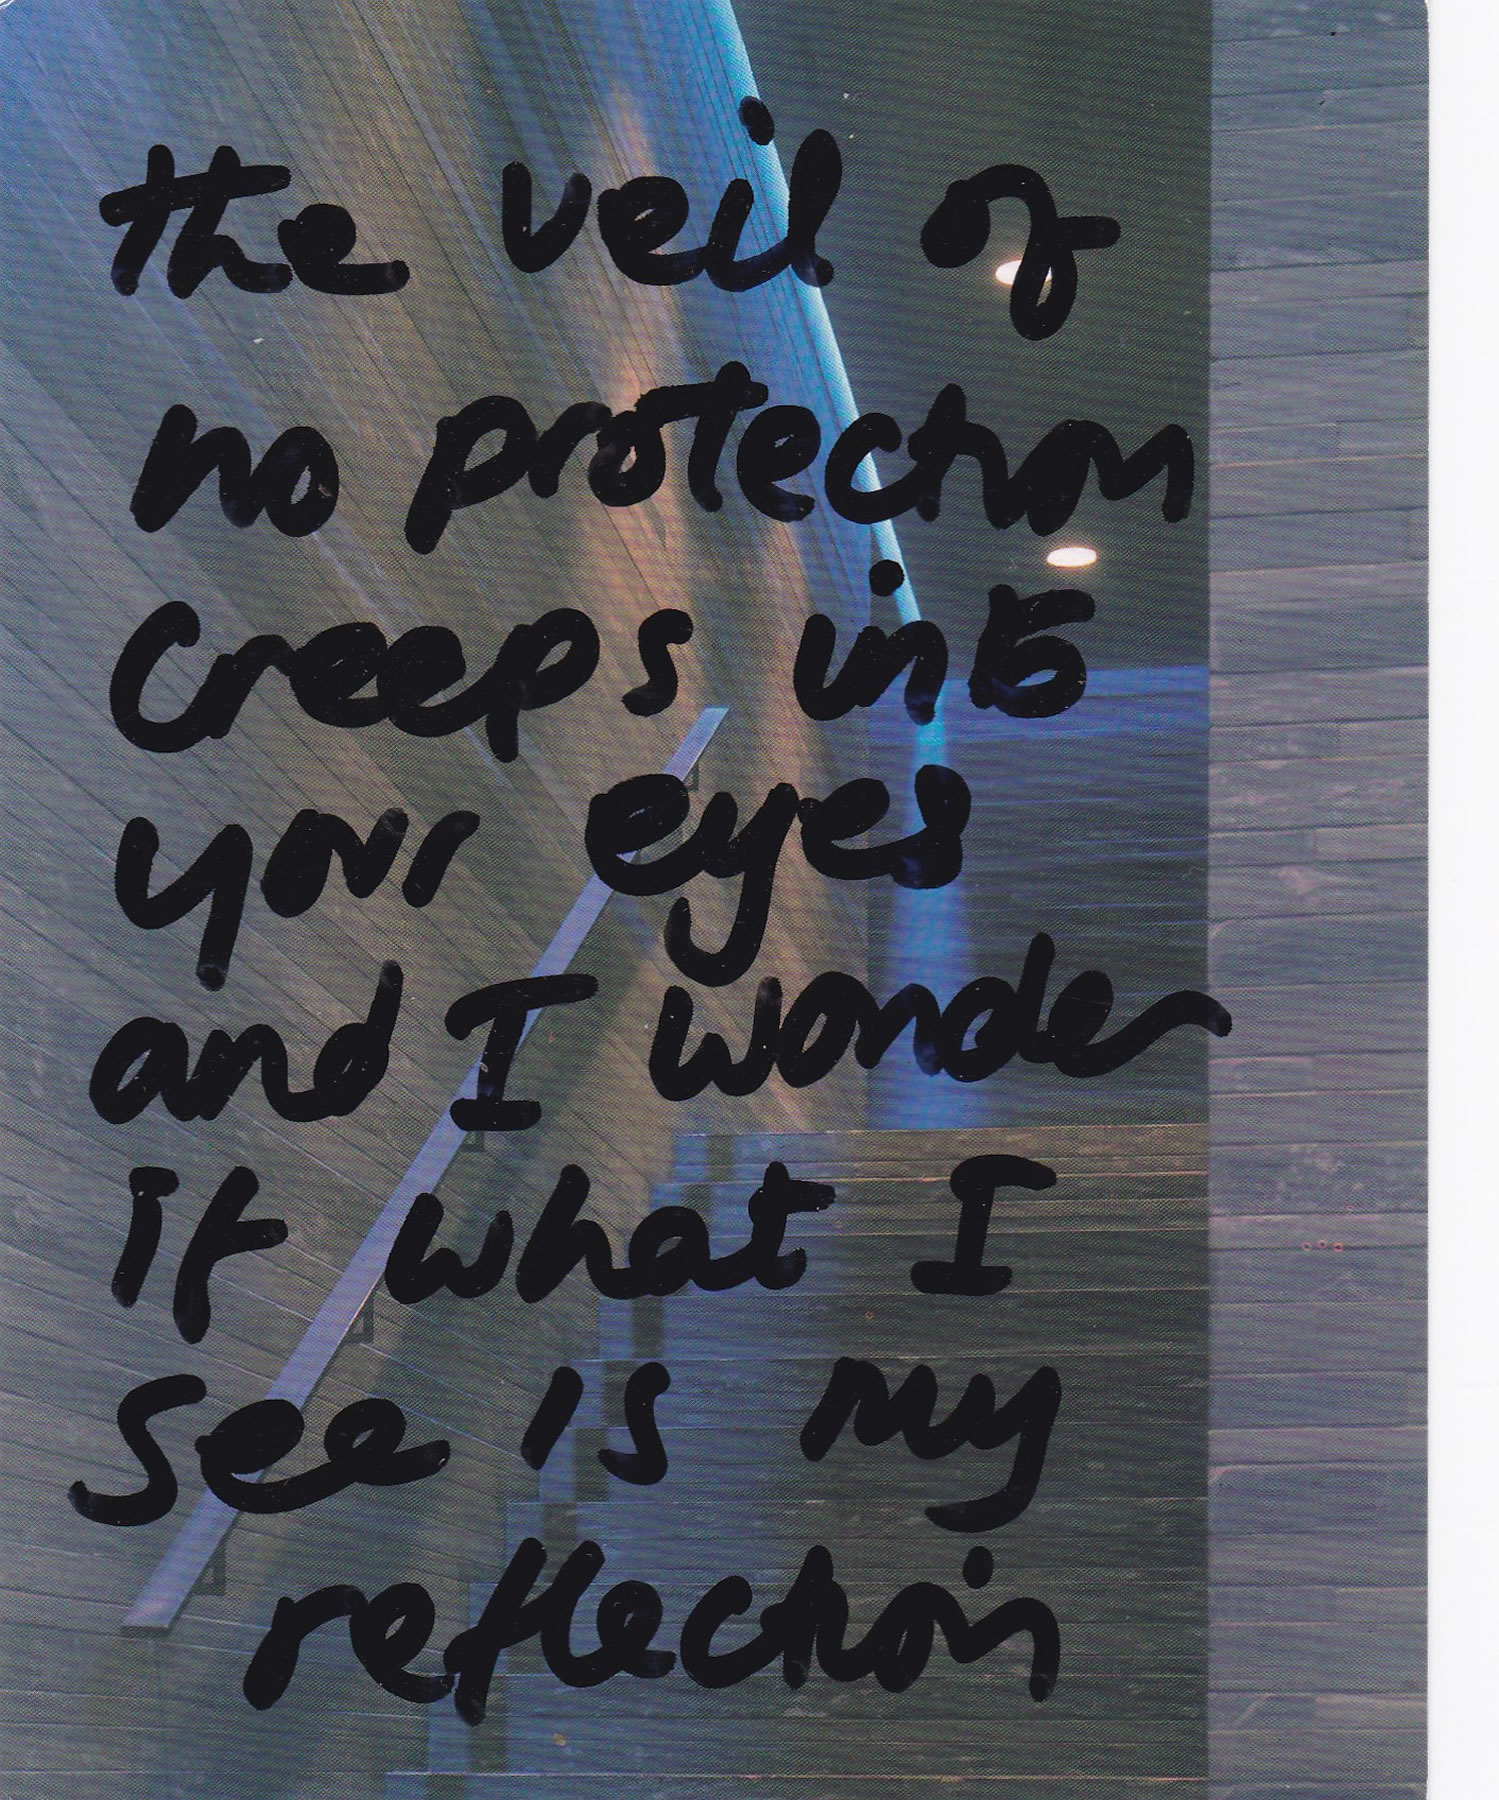 the veil of
no protection
creeps into
your eyes
and I wonder
if what I
see is my
reflection